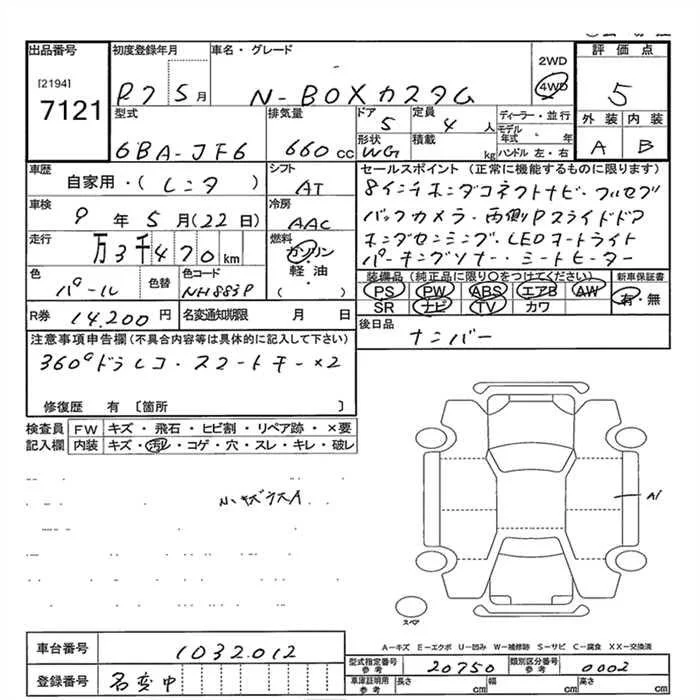 出品番号
[2194]
7121
初度登録年月
R7 5月
車名・グレード
N-BOXカスタム
2WD
4WD
評価点
5
外装 内装
A B
型式
6BA-JF6
排気量
660 cc
ドア
5
定員
4 人
形状
WG
積載
kg
ディーラー・並行
モデル年式 年
ハンドル 左・右
車歴
自家用・(レンタ)
シフト
AT
車検
9年 5月(22日)
冷房
AAC
走行
万3千470km
燃料
ガソリン・軽油・( )
色
パール
色替
色コード
NH883P
R券 14,200円
名変通知期限 月 日
セールスポイント(正常に機能するものに限ります)
8インチホンダコネクトナビ・フルセグ
バックカメラ・両側Pスライドドア
ホンダセンシング・LEDオートライト
パーキングソナー・シートヒーター
装備品(純正品に限り○をつけてください)
PS PW ABS エアB AW
SR ナビ TV カワ
新車保証書
有・無
後日品
ナンバー
注意事項申告欄(不具合内容等は具体的に記入して下さい)
360°ドラレコ・スマートキー×2
修復歴 有〔箇所 〕
検査員記入欄
FW キズ・飛石・ヒビ割・リペア跡・×要
内装 キズ・汚レ・コゲ・穴・スレ・キレ・破レ
小キズラスA
A1
スペア
A―キズ E―エクボ U―凹み W―補修跡 S―サビ C―腐食 XX―交換済
車台番号 1032012
登録番号 名変中
型式指定番号 参考 20750
類別区分番号 参考 0002
車庫証明用 参考 長さ cm 幅 cm 高さ cm